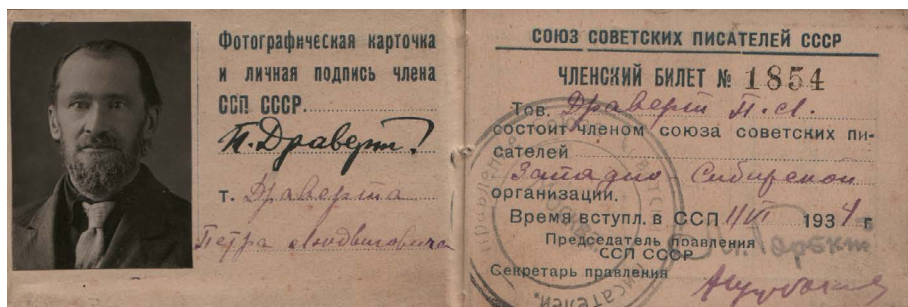 Фотографическая карточка
и личная подпись члена
ССП СССР.
П. Драверт
т. Драверта
Петра Людвиговича
СОЮЗ СОВЕТСКИХ ПИСАТЕЛЕЙ СССР
ЧЛЕНСКИЙ БИЛЕТ № 1854
Тов. Драверт П. Л.
состоит членом союза советских пи-
сателей
Западно-Сибирской
организации.
Время вступл. в ССП 11/VI 1934 г
Председатель правления
ССП СССР
Секретарь правления